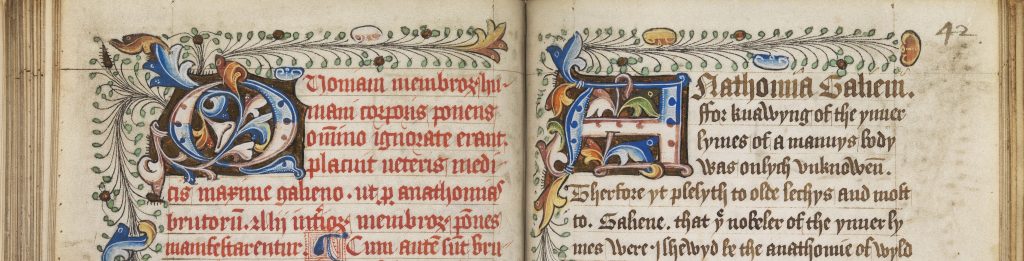 Quoniam membroꝝ hu-
mani corporis ponens
om̄ino ignorate erant.
placuit ueteris medi-
cis maxime galieno. ut ꝑ anathomias
brutoruꝫ. Alij
manifestarentur. ¶ Cum autē sūt bru
42
Anathomia Galieni.
ffor knawyng of the ynner
lymes of a mannys body
was onlych vnknowen.
Therfore yt plesyth to olde lechys and most
to. Galiene. that yͤ nobeler of the ynner ly
mes were .ishewyd be the anathomie of wyld